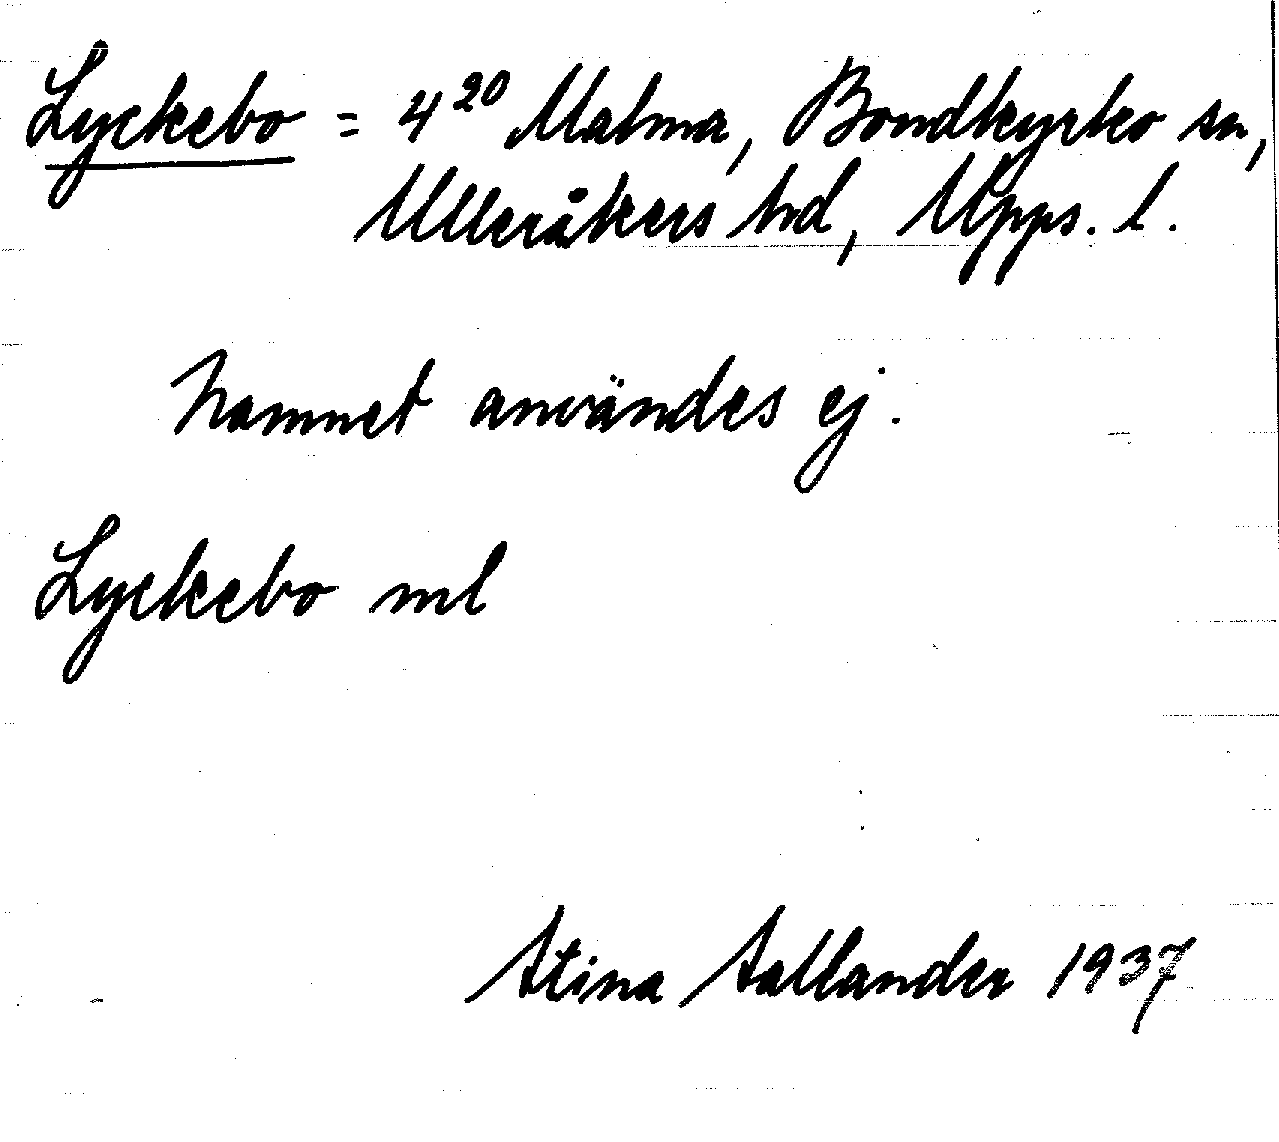 Lyckebo = 4²⁰ Malma, Bondkyrko sn,
Ulleråkers hd, Upps. l.
Namnet användes ej.
Lyckebo ml
Stina Sallander 1937